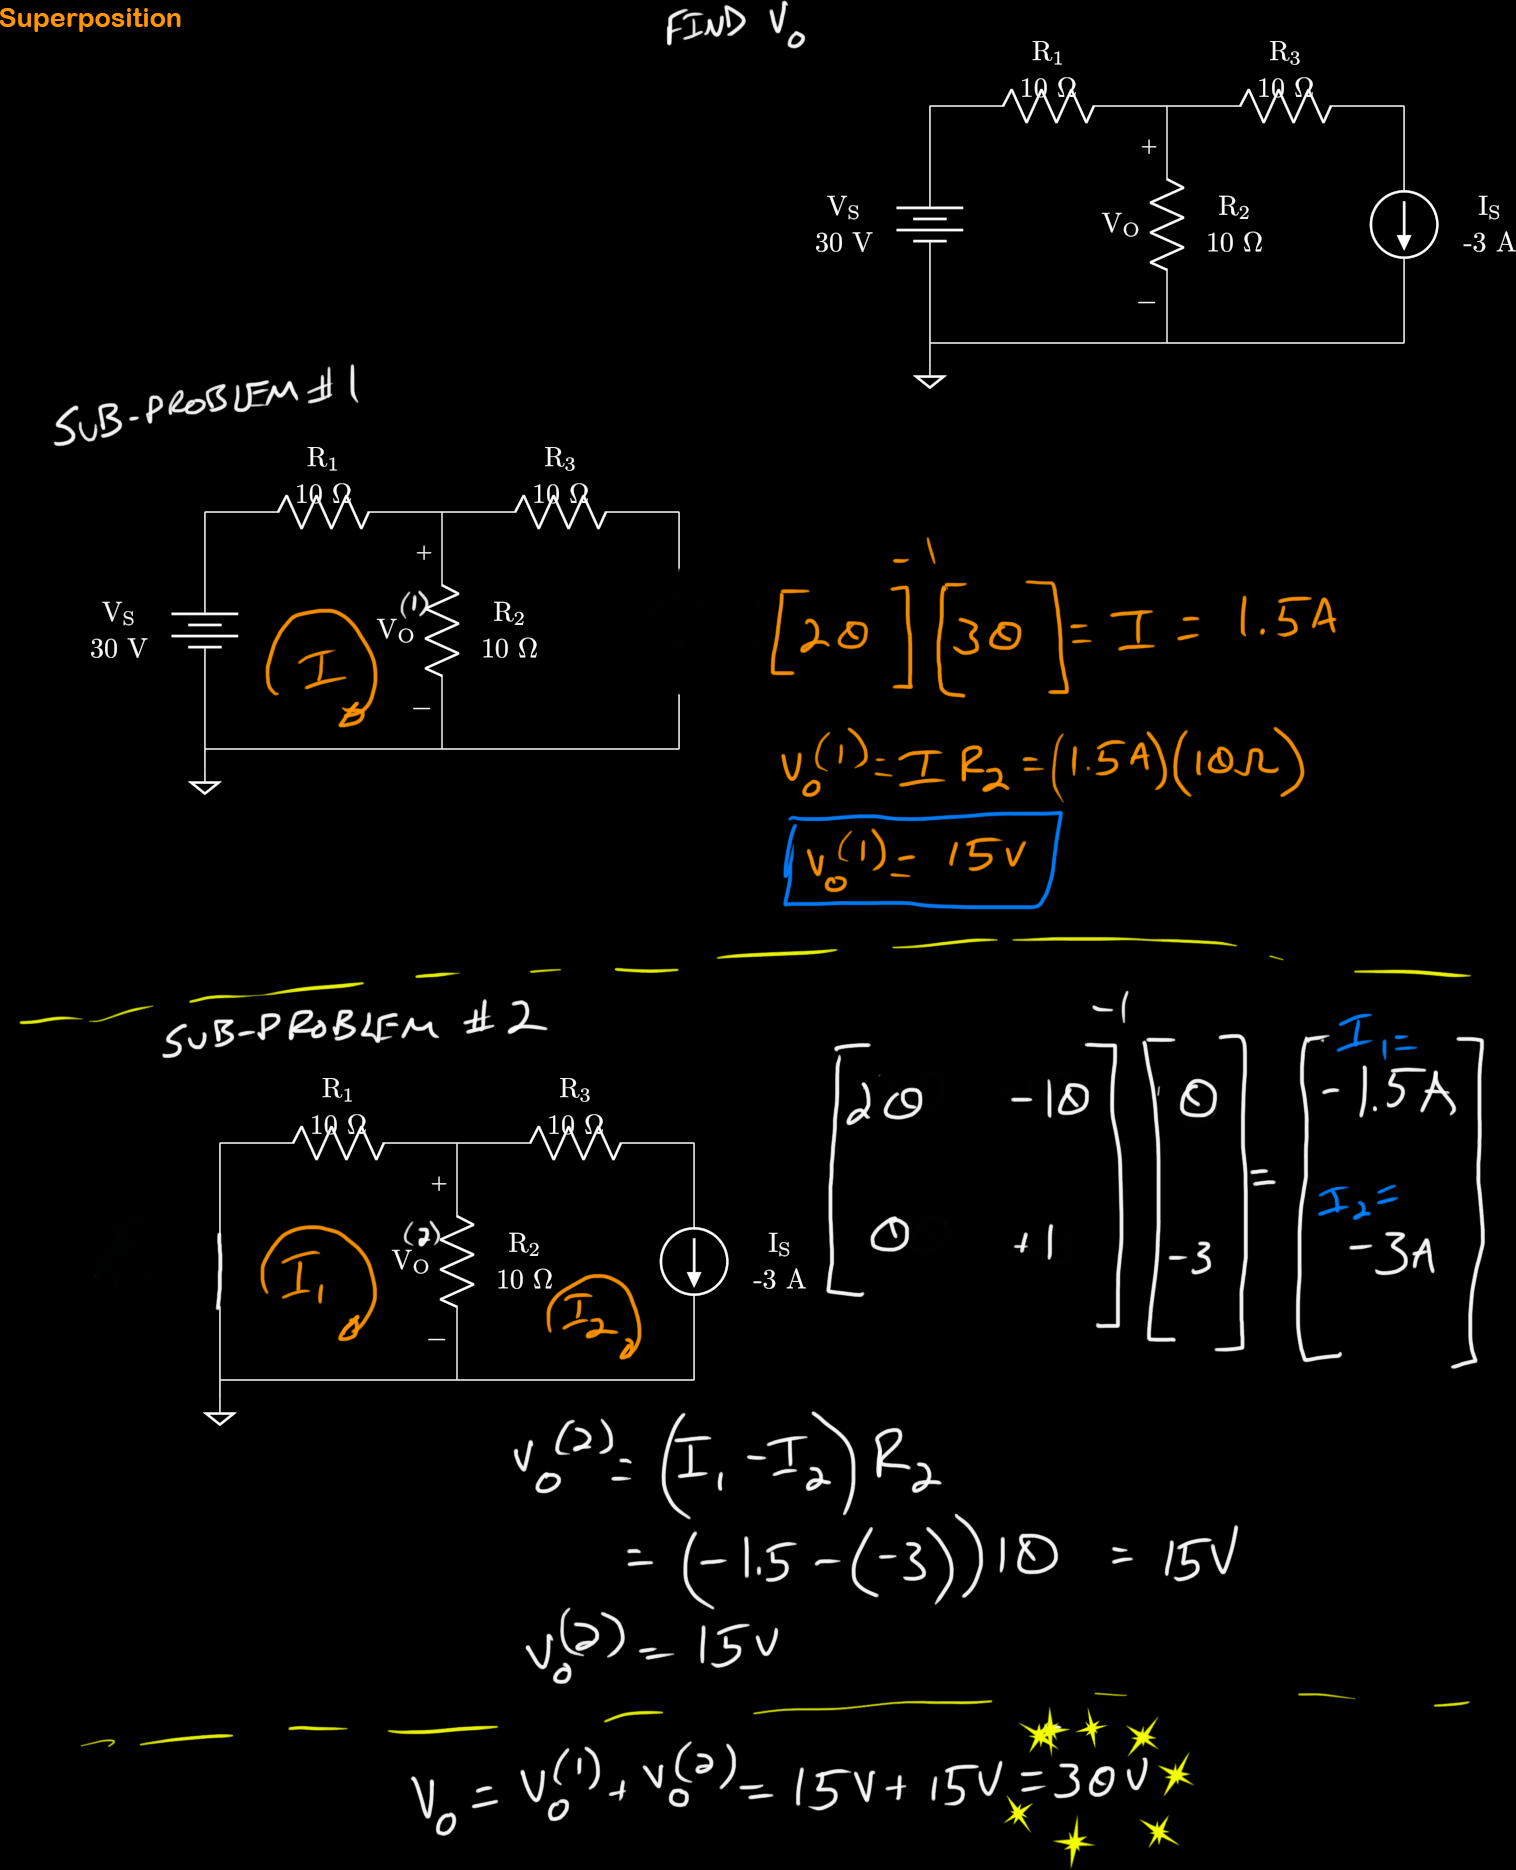 Superposition
FIND Vo
R1
10 Ω
R3
10 Ω
+
VS
30 V
VO
R2
10 Ω
IS
-3 A
−
SUB-PROBLEM #1
R1
10 Ω
R3
10 Ω
+
VS
30 V
I
VO(1)
R2
10 Ω
−
[20]-1 [30] = I = 1.5A
Vo(1) = I R2 = (1.5A)(10Ω)
Vo(1) = 15V
SUB-PROBLEM #2
R1
10 Ω
R3
10 Ω
+
I1
VO(2)
R2
10 Ω
I2
IS
-3 A
−
[20 -10
0 +1]-1 [0
-3] = [I1= -1.5A
I2= -3A]
Vo(2) = (I1 - I2) R2
= (-1.5 - (-3)) 10 = 15V
Vo(2) = 15V
Vo = Vo(1) + Vo(2) = 15V + 15V = 30V